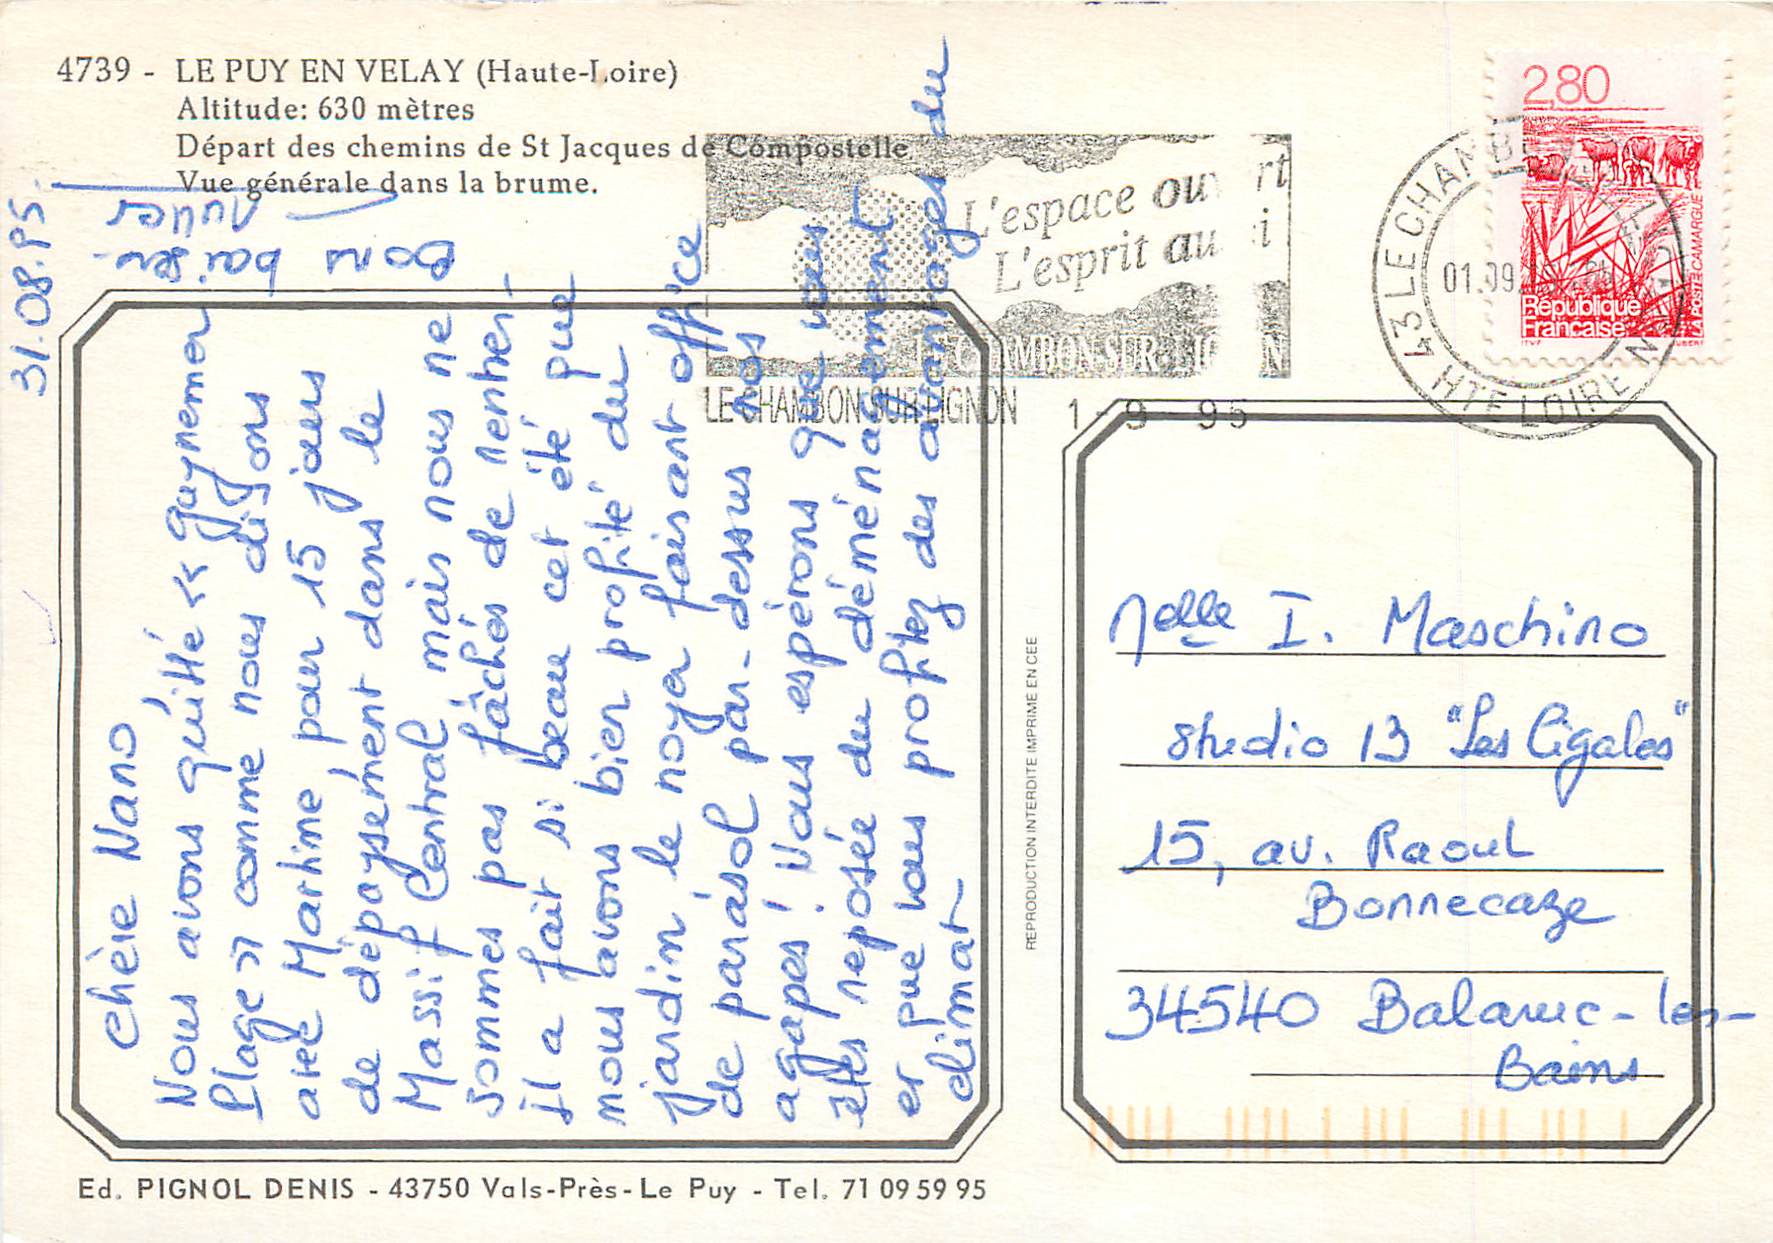 4739 - LE PUY EN VELAY (Haute-Loire)
Altitude: 630 mètres
Départ des chemins de St Jacques de Compostelle
Vue générale dans la brume.
31.08.95.
Chère Nano
Nous avons quitté << Guynemer
Plage >> comme nous disons
avec Martine pour 15 jours
de dépaysement dans le
Massif Central mais nous ne
sommes pas fâchés de rentrer
il a fait si beau cet été que
nous avons bien profité du
jardin le noyer faisant office
de parasol par-dessus nos
agapes! Nous espérons que vous
êtes reposée du déménagement
et que vous profitez des avantages du
climat
Bons baisers
L'espace ouvert
L'esprit aussi
LE CHAMBON-SUR-LIGNON
LE CHAMBON SUR LIGNON 1-9 95
43 LE CHAMBON
01.09
HTE LOIRE
2,80
République
Française
LA POSTE CAMARGUE
ITVF
Melle I. Maschino
studio 13 "Les Cigales"
15, av. Raoul
Bonnecaze
34540 Balaruc-les-
Bains
REPRODUCTION INTERDITE IMPRIME EN CEE
Ed. PIGNOL DENIS - 43750 Vals-Près-Le Puy - Tel. 71 09 59 95